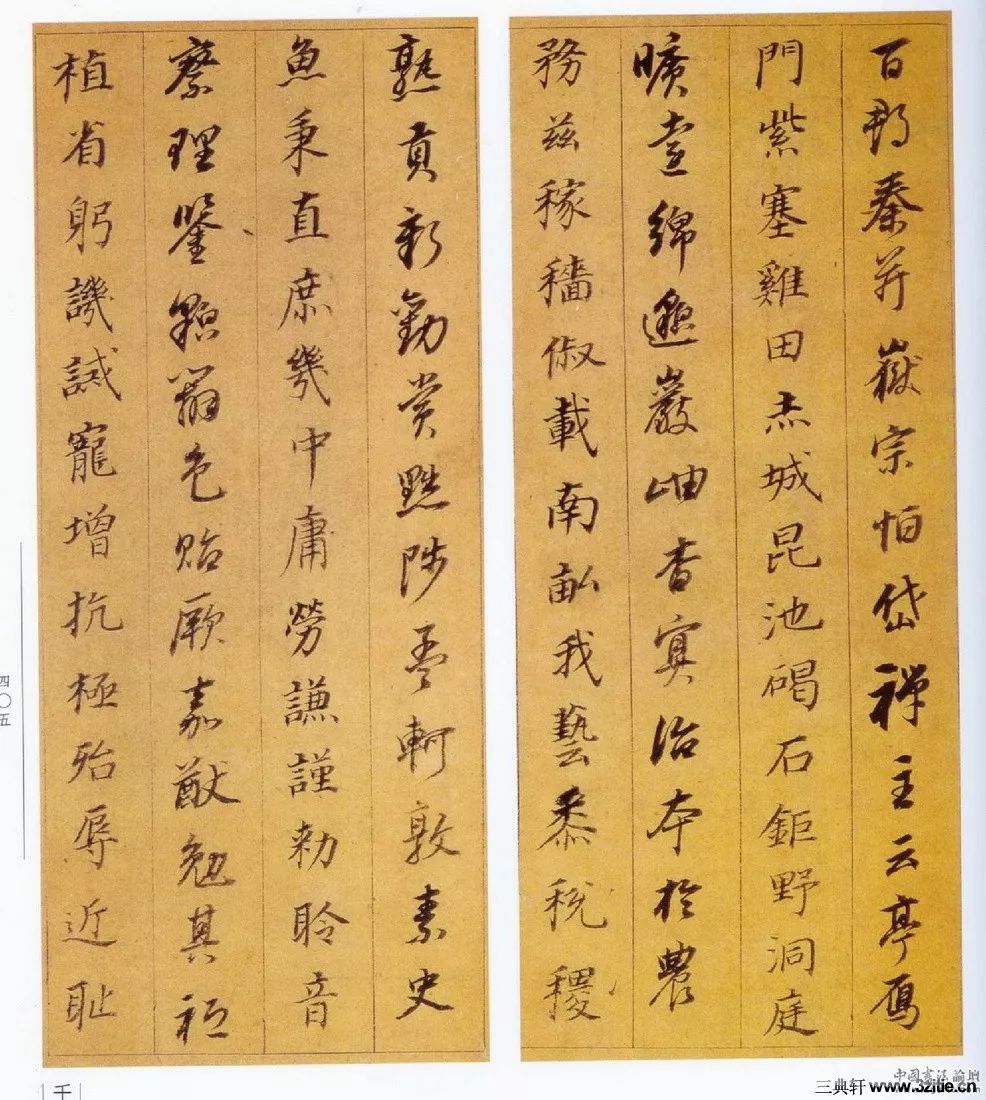 百郡秦并嶽宗恒岱禪主云亭鴈
門紫塞雞田赤城昆池碣石鉅野洞庭
曠遠綿邈巖岫杳冥治本於農
務茲稼穡俶載南畝我藝黍稅稷
熟貢新勸賞黜陟孟軻敦素史
魚秉直庶幾中庸勞謙謹勅聆音
察理鑒貌辨色貽厥嘉猷勉其祗
植省躬譏誡寵增抗極殆辱近耻
四〇五
千
中國書法論壇
三典轩 www.3zitie.cn